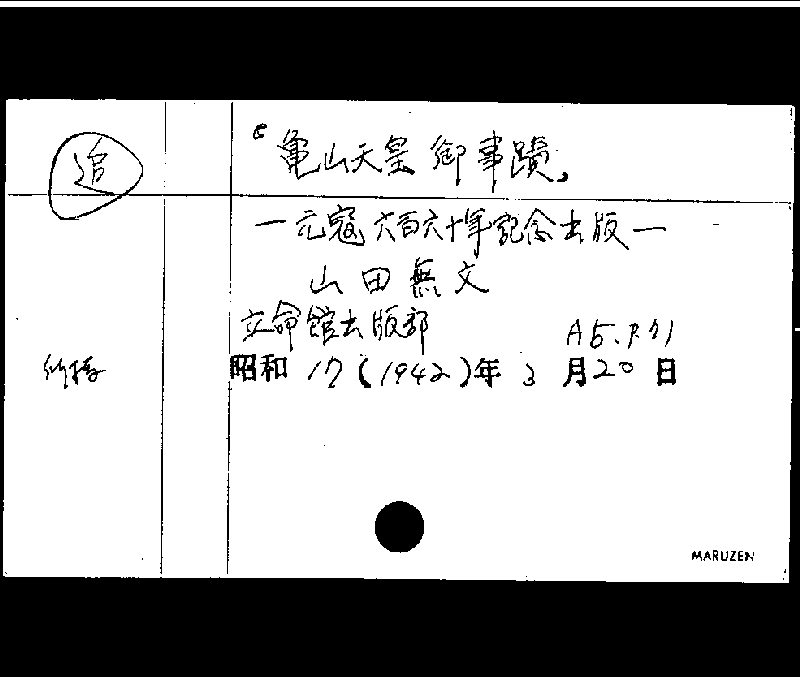 追
亀山天皇御事蹟
―元寇六百六十年記念出版―
山田無文
立命館出版部
A5. P.71
昭和17(1942)年3月20日
MARUZEN